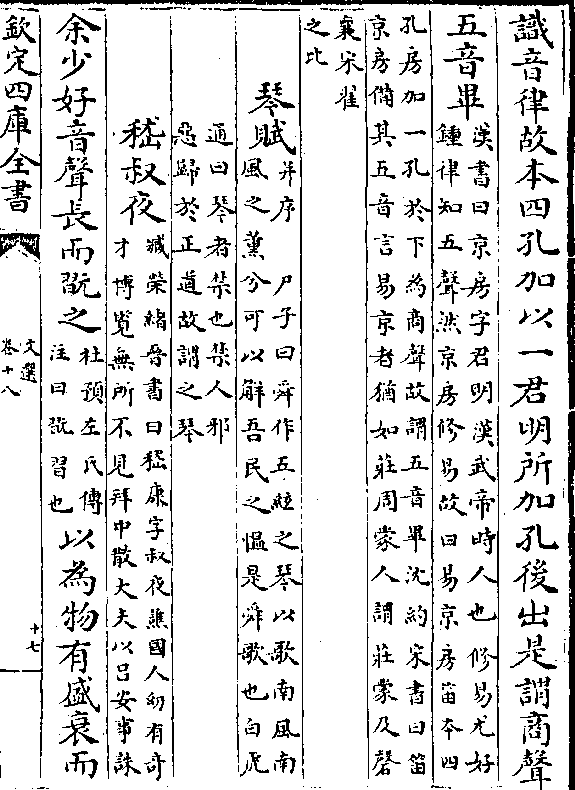 識音律故本四孔加以一君明所加孔後出是謂商聲
五音畢漢書曰京房字君明漢武帝時人也修易尤好
鍾律知五聲然京房修易故曰易京房笛本四
孔房加一孔於下為商聲故謂五音畢沈約宋書曰笛
京房備其五音言易京者猶如莊周蒙人謂莊蒙及磬
襄宋翟
之比
琴賦并序 尸子曰舜作五絃之琴以歌南風南
風之薰兮可以解吾民之愠是舜歌也白虎
通曰琴者禁也禁人邪
惡歸於正道故謂之琴
嵇叔夜臧榮緒晉書曰嵇康字叔夜譙國人幼有奇
才博覽無所不見拜中散大夫以呂安事誅
余少好音聲長而翫之杜預左氏傳
注曰翫習也以為物有盛衰而
欽定四庫全書
文選
卷十八
十七